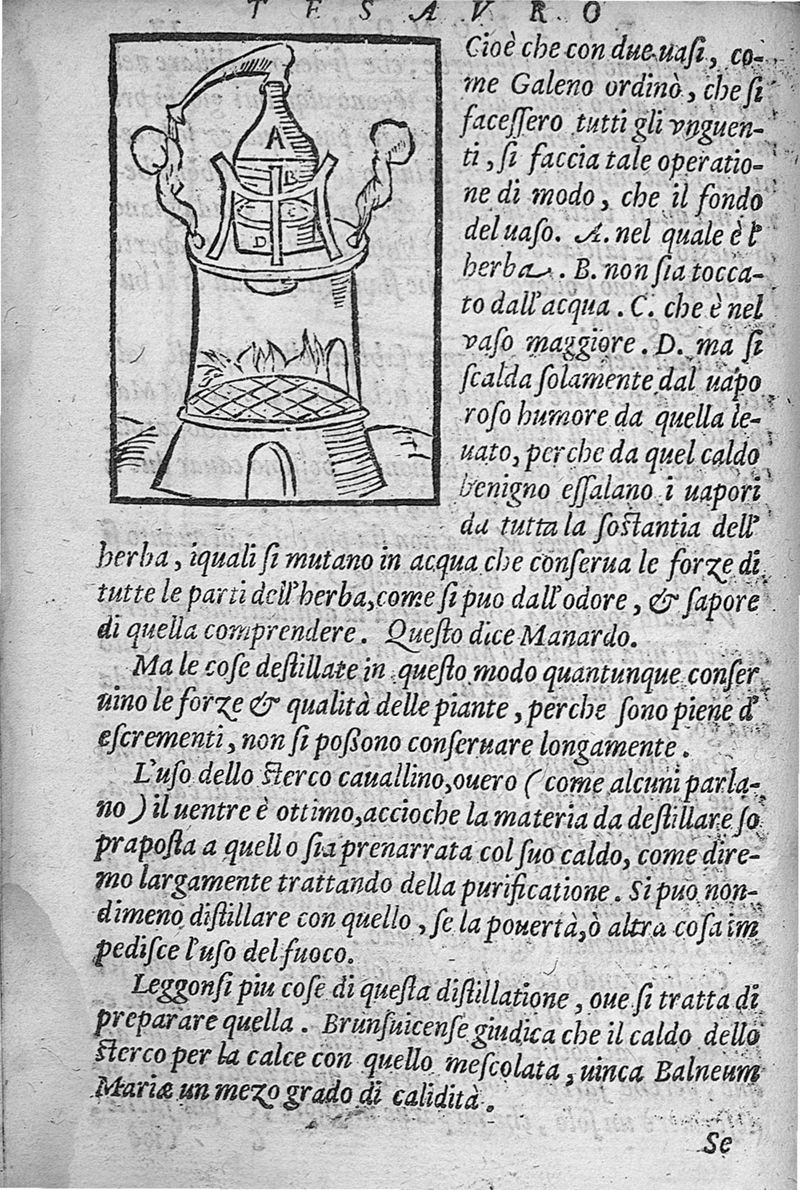 TESAVRO
A
B
C
D
Cioè che con due uaſi, co-
me Galeno ordinò, che ſi
faceſſero tutti gli vnguen-
ti, ſi faccia tale operatio-
ne di modo, che il fondo
del uaſo. A. nel quale è l'
herba. B. non ſia tocca-
to dall'acqua. C. che è nel
vaſo maggiore. D. ma ſi
ſcalda ſolamente dal uapo
roſo humore da quella le-
uato, perche da quel caldo
benigno eſſalano i uapori
da tutta la ſoſtantia dell'
herba, iquali ſi mutano in acqua che conſerua le forze di
tutte le parti dell'herba, come ſi puo dall'odore, & ſapore
di quella comprendere. Queſto dice Manardo.
Ma le coſe deſtillate in queſto modo quantunque conſer
uino le forze & qualità delle piante, perche ſono piene d'
eſcrementi, non ſi poßono conſeruare longamente.
L'uſo dello ſterco cauallino, ouero (come alcuni parla-
no) il uentre è ottimo, accioche la materia da deſtillare ſo
prapoſta a quello ſia prenarrata col ſuo caldo, come dire-
mo largamente trattando della purificatione. Si puo non-
dimeno diſtillare con quello, ſe la pouertà, ò altra coſa im
pediſce l'uſo del fuoco.
Leggonſi piu coſe di queſta diſtillatione, oue ſi tratta di
preparare quella. Brunſuicenſe giudica che il caldo dello
ſterco per la calce con quello meſcolata, uinca Balneum
Mariæ un mezo grado di calidità.
Se